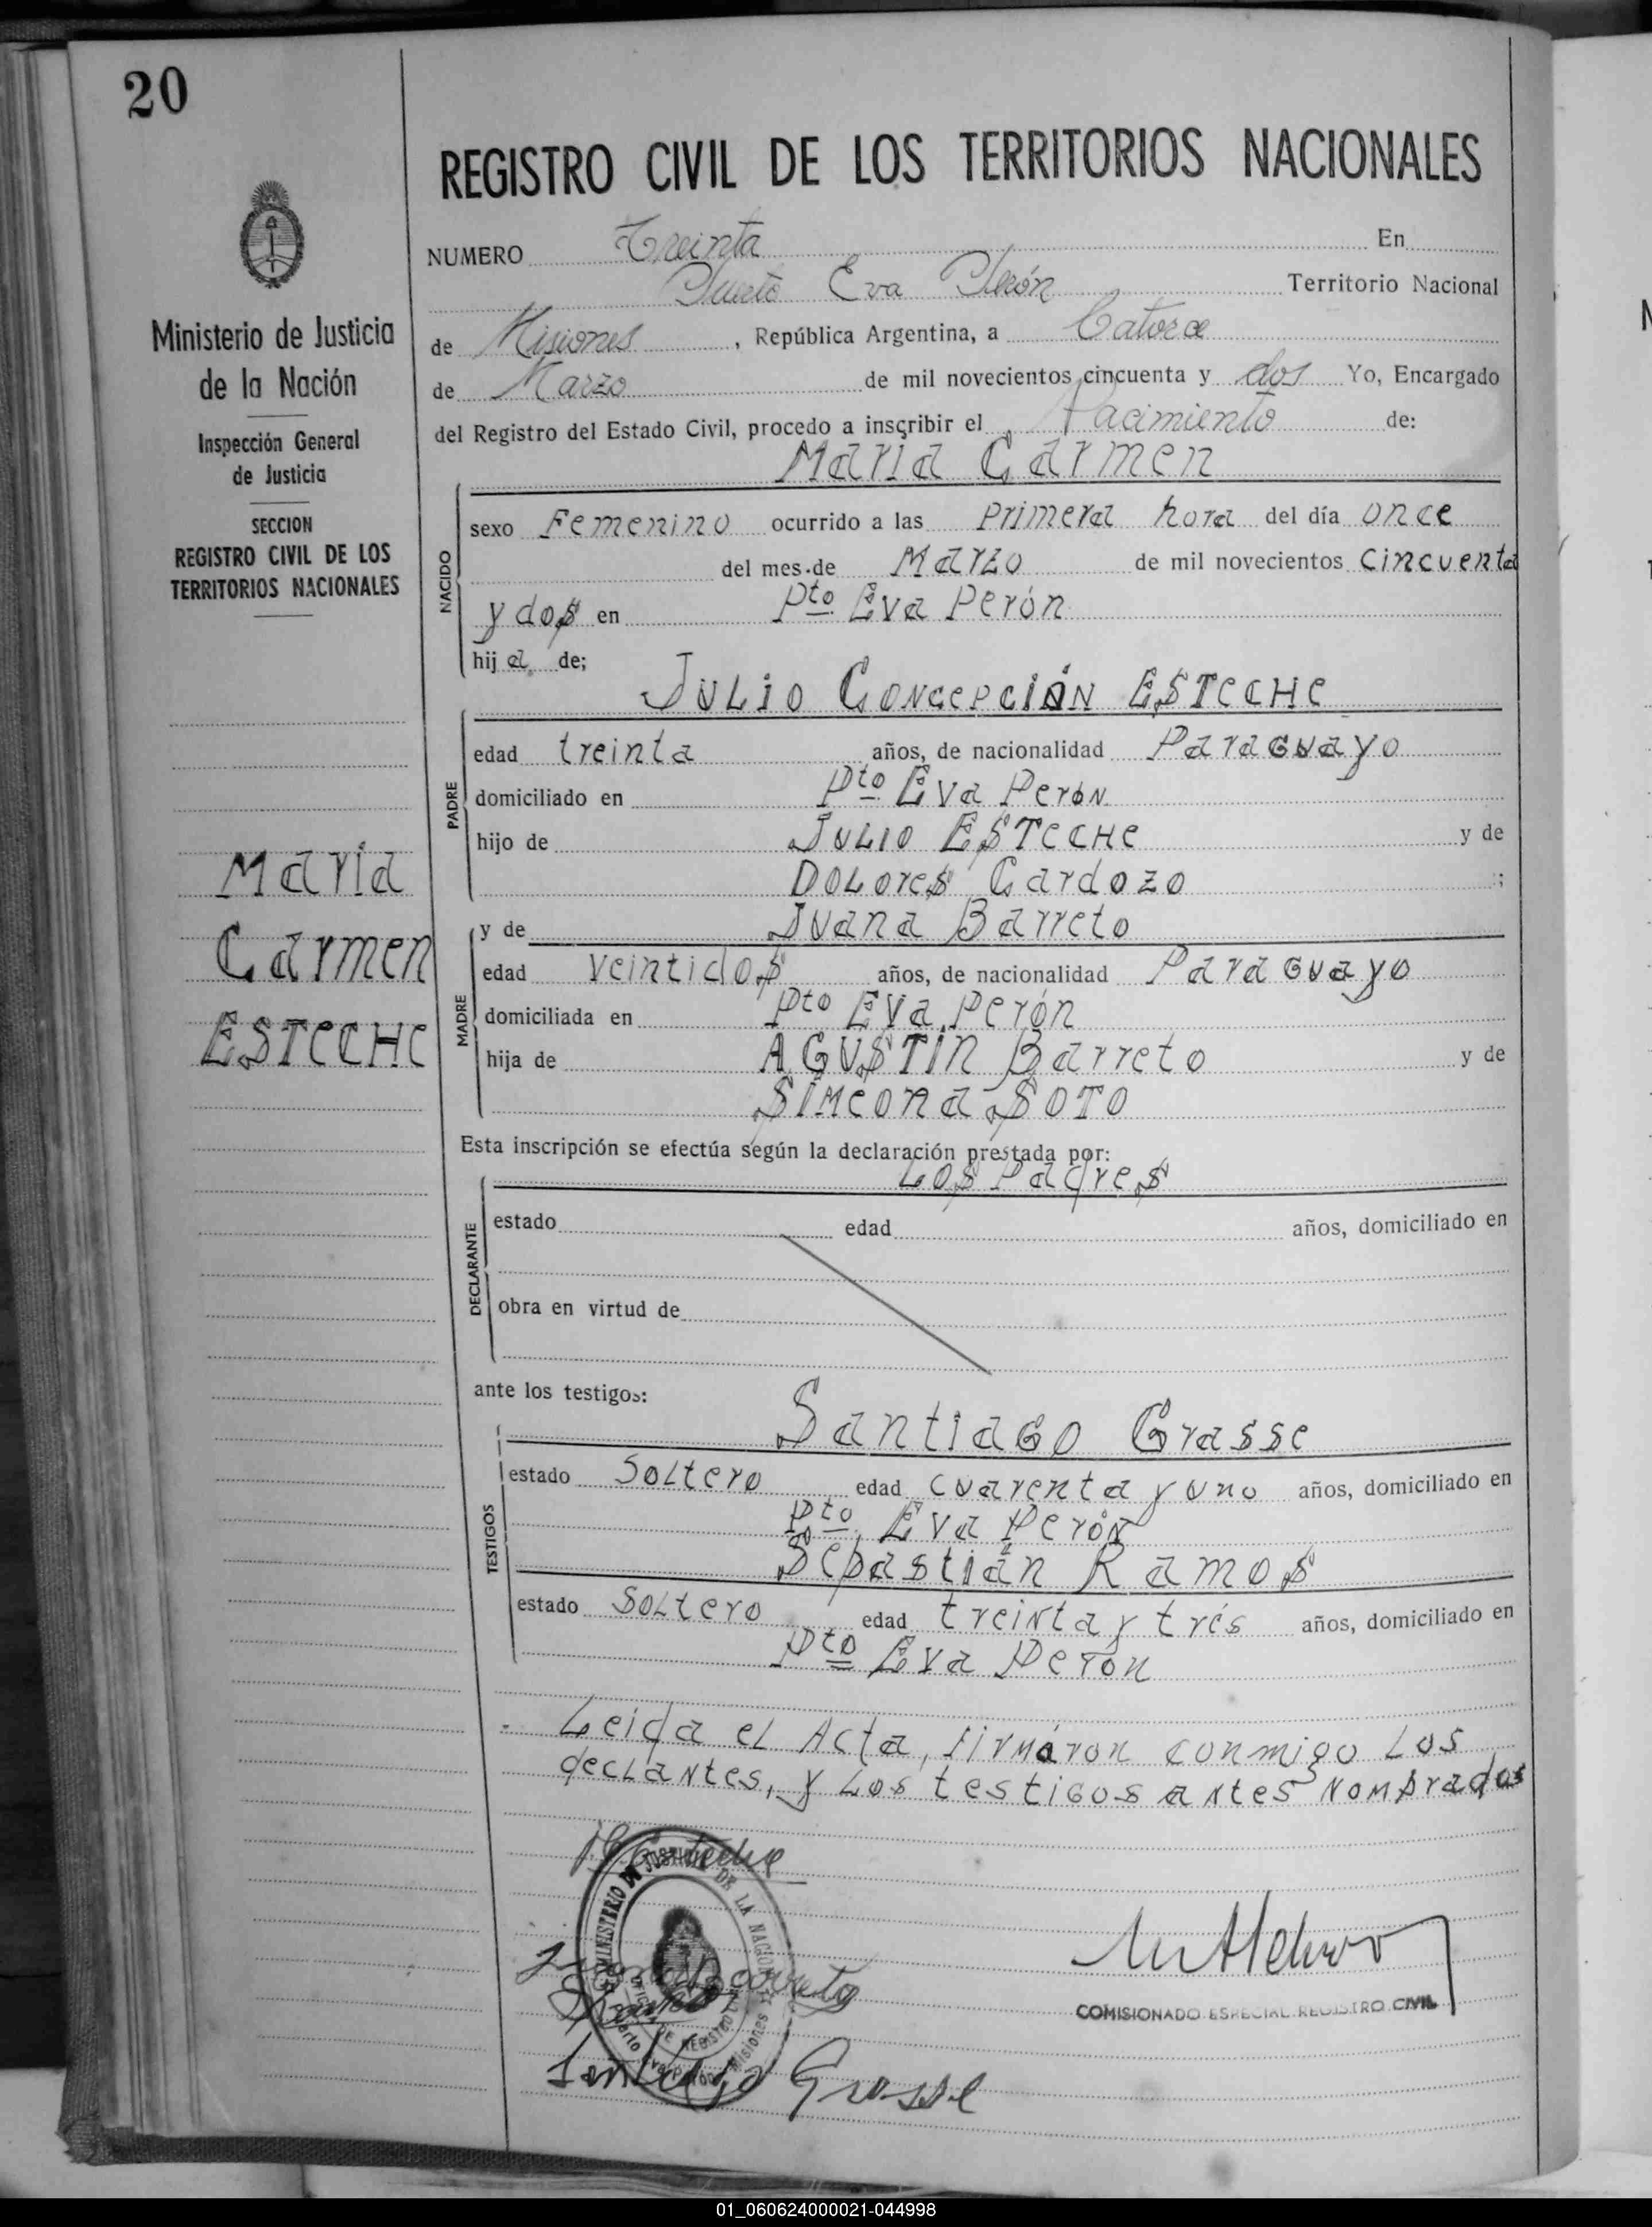 20
Ministerio de Justicia
de la Nación
Inspección General
de Justicia
SECCION
REGISTRO CIVIL DE LOS
TERRITORIOS NACIONALES
Maria
Carmen
ESTECHE
REGISTRO CIVIL DE LOS TERRITORIOS NACIONALES
NUMERO Treinta En
Puerto Eva Perón Territorio Nacional
de Misiones, República Argentina, a Catorce
de Marzo de mil novecientos cincuenta y dos Yo, Encargado
del Registro del Estado Civil, procedo a inscribir el Nacimiento de:
Maria Carmen
NACIDO
sexo Femenino ocurrido a las primera hora del día once
del mes de Marzo de mil novecientos cincuenta
y dos en Pto Eva Perón
hija de;
JULIO CONCEPCIÓN ESTECHE
PADRE
edad treinta años, de nacionalidad Paraguayo
domiciliado en Pto Eva Perón
hijo de JULIO ESTECHE y de
DOLores Cardozo ;
y de Juana Barreto
MADRE
edad veintidos años, de nacionalidad Paraguayo
domiciliada en Pto Eva Perón
hija de AGUSTIN Barreto y de
SIMeona SOTO
Esta inscripción se efectúa según la declaración prestada por:
Los Padres
DECLARANTE
estado edad años, domiciliado en
obra en virtud de
ante los testigos:
Santiago Grasse
TESTIGOS
estado SOLtero edad cuarenta y uno años, domiciliado en
Pto Eva Perón
Sebastián Ramos
estado SOLtero edad treinta y trés años, domiciliado en
Pto Eva Peron
Leida el Acta, firmáron conmigo Los
decLantes, y Los testigos antes nombrados
MINISTERIO DE JUSTICIA DE LA NACION
COMISIONADO ESPECIAL REGISTRO CIVIL
Santiago Grasse
01_060624000021-044998